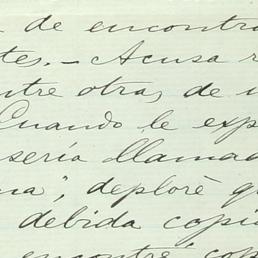 de encontra
tes. — Acusa r
ntre otras, de u
Cuando le exp
sería llamad
na", deploré q
debida copi
encontré cop